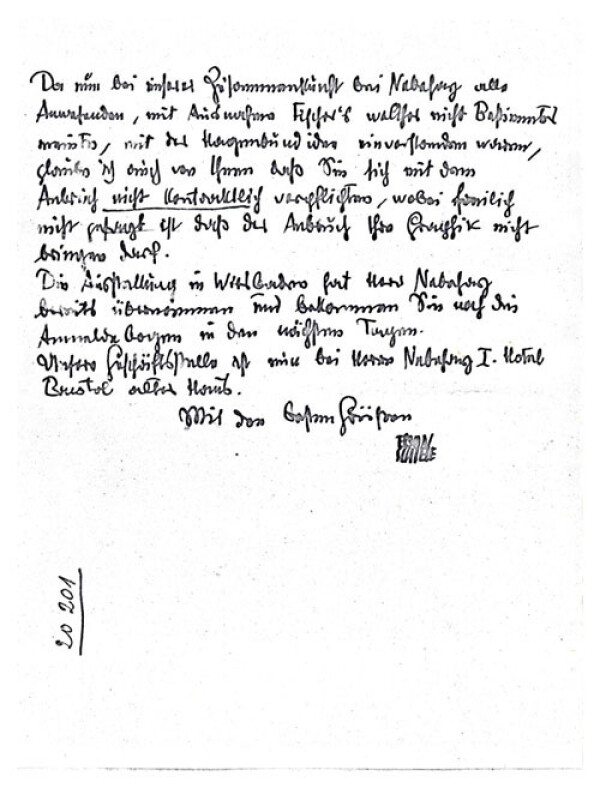 Da nun bei unserer Zusammenkunft bei Nebehay alle
Anwesenden, mit Ausnahme Fischer's welcher nicht Bestimmtes
meinte, mit der Hagenbundidee einverstanden waren,
glaube ich auch von Ihnen daß Sie sich mit dem
Anbruch nicht kontracktlich verpflichten, wobei freilich
nicht gesagt ist daß der Anbruch Ihre Graphik nicht
bringen darf.
Die Ausstellung in Wiesbaden hat Herr Nebehay
bereits übernommen und bekommen Sie noch die
Anmeldebogen in den nächsten Tagen.
Unsere Geschäftsstelle ist nun bei Herrn Nebehay I. Hotel
Bristol
Mit den besten Grüßen
20 201